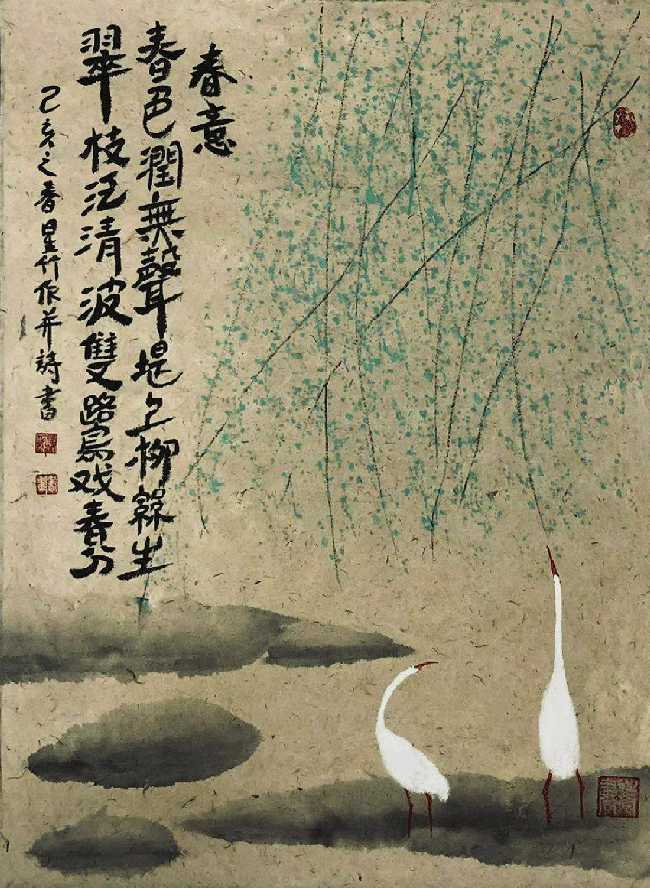 春意
春色潤無聲堤上柳綠生
翠枝泛清波雙鷺戏春分
己亥之春星竹作并詩書